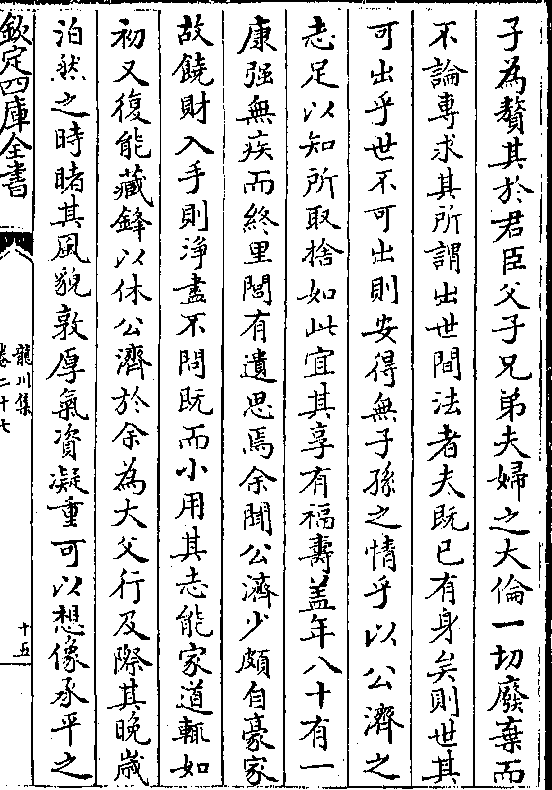 子為贅其於君臣父子兄弟夫婦之大倫一切廢棄而
不論專求其所謂出世間法者夫既已有身矣則世其
可出乎世不可出則安得無子孫之情乎以公濟之
志足以知所取捨如此宜其享有福壽盖年八十有一
康强無疾而終里閭有遺思焉余聞公濟少頗自豪家
故饒財入手則淨盡不問既而小用其志能家道輒如
初又復能藏鋒以休公濟於余為大父行及際其晚歳
泊然之時睹其風貌敦厚氣資凝重可以想像承平之
欽定四庫全書
龍川集
卷二十七
十五